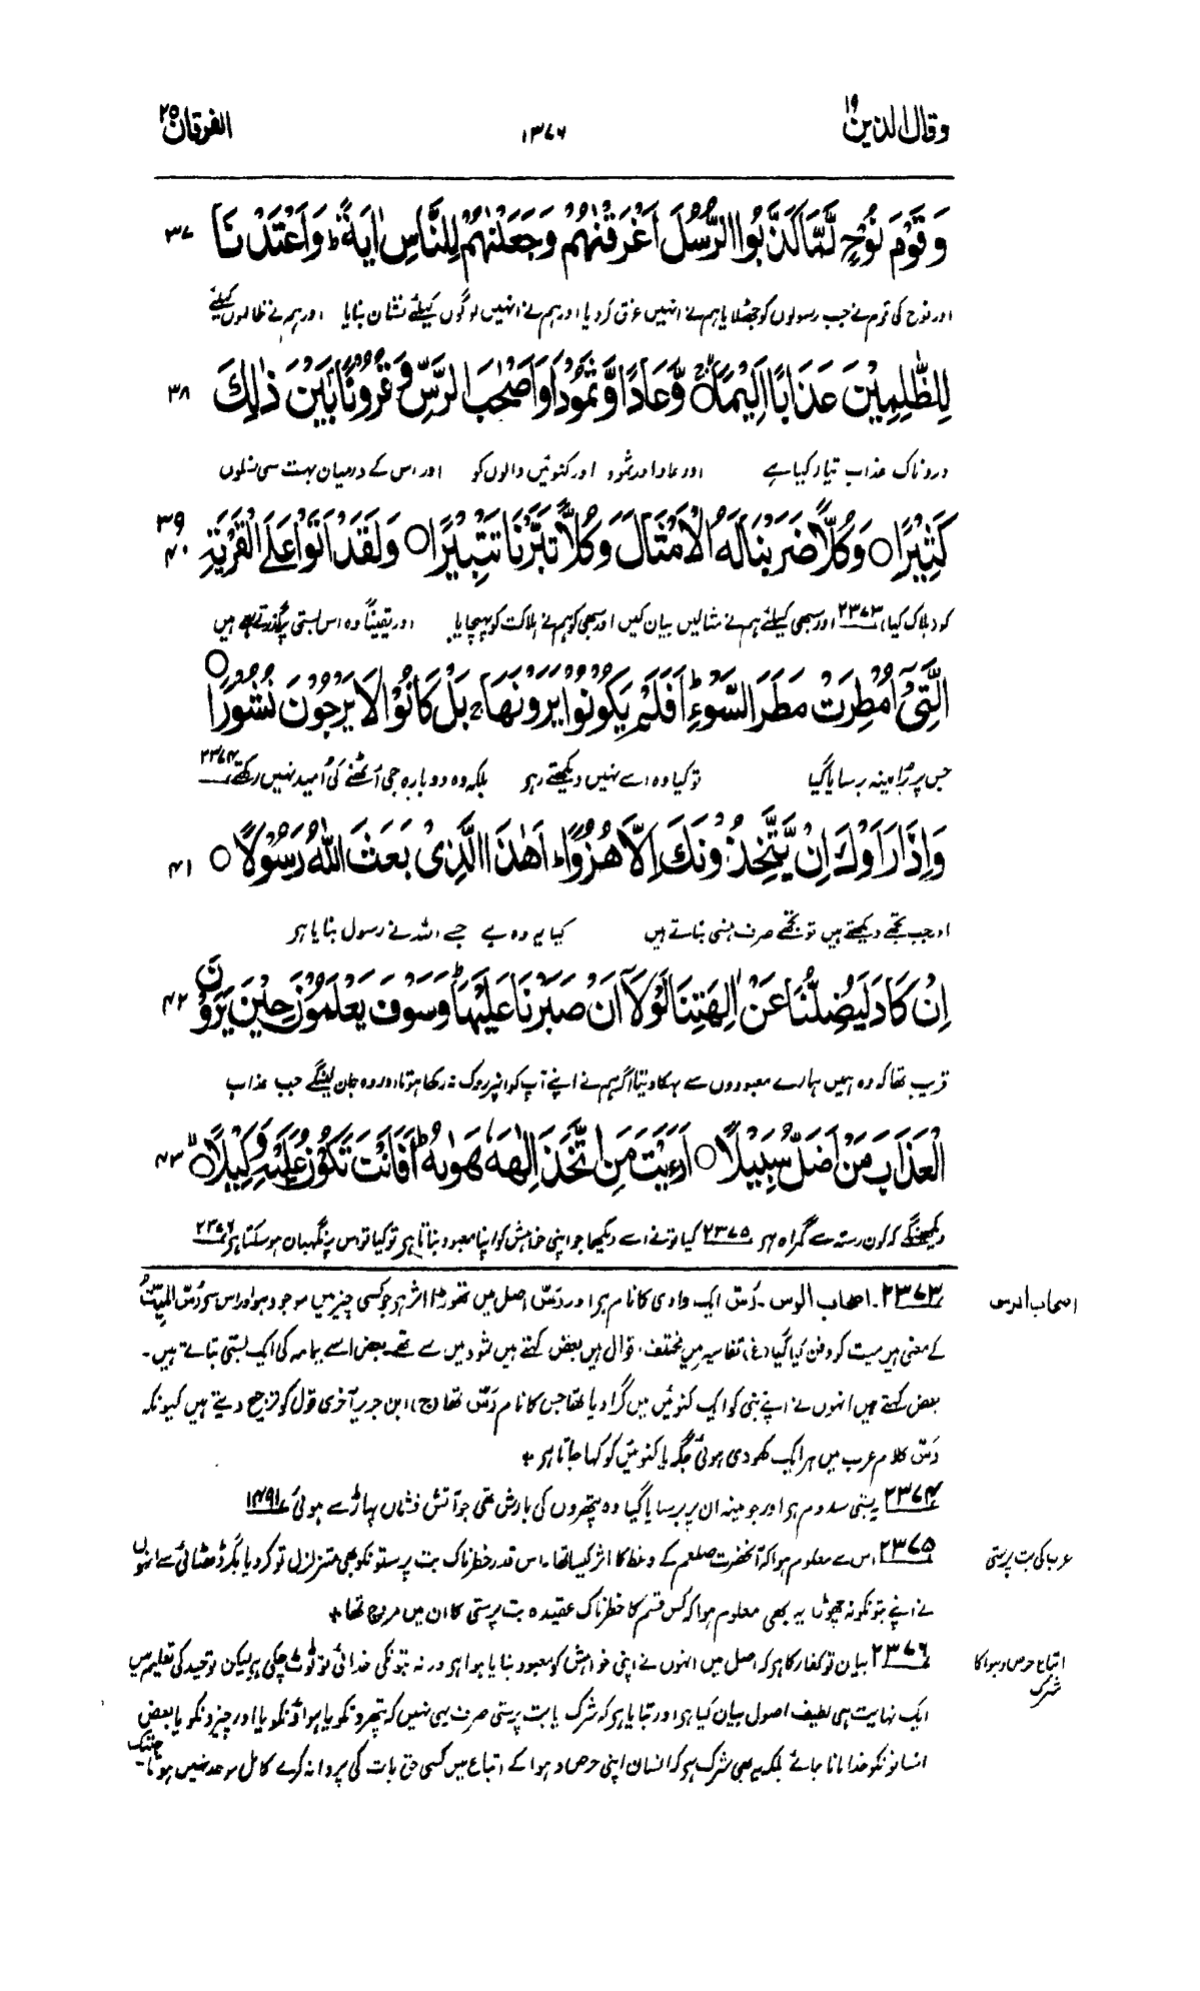 وقال الذین ۱۹
۱۳۷۶
الفرقان ۲۵
وَقَوْمَ نُوْحٍ لَّمَّا كَذَّبُوا الرُّسُلَ اَغْرَقْنٰهُمْ وَجَعَلْنٰهُمْ لِلنَّاسِ اٰيَةً ؕ وَاَعْتَدْنَا ۳۷
اور نوح کی قوم نے جب رسولوں کو جھٹلایا ہم نے انہیں غرق کر دیا اور ہم نے انہیں لوگوں کیلئے نشان بنایا اور ہم نے ظالموں کیلئے
لِلظّٰلِمِيْنَ عَذَابًا اَلِيْمًا ○ وَّعَادًا وَّثَمُوْدَا۟ وَاَصْحٰبَ الرَّسِّ وَقُرُوْنًا بَيْنَ ذٰلِكَ ۳۸
دردناک عذاب تیار کیا ہے اور عاد اور ثمود اور کنوئیں والوں کو اور اس کے درمیان بہت سی نسلوں
كَثِيْرًا ○ وَكُلًّا ضَرَبْنَا لَهُ الْاَمْثَالَ وَكُلًّا تَبَّرْنَا تَتْبِيْرًا ○ وَلَقَدْ اَتَوْا عَلَى الْقَرْيَةِ ۳۹ ۴۰
کو ہلاک کیا ۲۳۷۳ اور سبھی کیلئے ہم نے مثالیں بیان کیں اور سبھی کو ہم نے ہلاکت کو پہنچایا اور یقیناً وہ اس بستی پر گذرتے رہے ہیں
الَّتِيْٓ اُمْطِرَتْ مَطَرَ السَّوْءِ ؕ اَفَلَمْ يَكُوْنُوْا يَرَوْنَهَا ۚ بَلْ كَانُوْا لَا يَرْجُوْنَ نُشُوْرًا ○
جس پر بُرا مینہ برسایا گیا تو کیا وہ اسے نہیں دیکھتے رہے بلکہ وہ دوبارہ جی اُٹھنے کی اُمید نہیں رکھتے ۲۳۷۴
وَاِذَا رَاَوْكَ اِنْ يَّتَّخِذُوْنَكَ اِلَّا هُزُوًا ؕ اَهٰذَا الَّذِيْ بَعَثَ اللّٰهُ رَسُوْلًا ○ ۴۱
اور جب تجھے دیکھتے ہیں تو تجھے صرف ہنسی بناتے ہیں کیا یہ وہ ہے جسے اللہ نے رسول بنایا ہر
اِنْ كَادَ لَيُضِلُّنَا عَنْ اٰلِهَتِنَا لَوْلَآ اَنْ صَبَرْنَا عَلَيْهَا ؕ وَسَوْفَ يَعْلَمُوْنَ حِيْنَ يَرَوْنَ ۴۲
قریب تھا کہ وہ ہمیں ہمارے معبودوں سے بہکا دیتا اگر ہم نے اپنے آپ کو انپر روک نہ رکھا ہوتا، اور وہ جان لینگے جب عذاب
الْعَذَابَ مَنْ اَضَلُّ سَبِيْلًا ○ اَرَءَيْتَ مَنِ اتَّخَذَ اِلٰهَهٗ هَوٰىهُ ؕ اَفَاَنْتَ تَكُوْنُ عَلَيْهِ وَكِيْلًا ○ ۴۳
دیکھینگے کہ کون رستہ سے گمراہ ہر ۲۳۷۵ کیا تو نے اسے دیکھا جو اپنی خواہش کو اپنا معبود بناتا ہر تو کیا تو اس پر نگہبان ہو سکتا ہر ۲۳۷۶
اصحاب الرس
۲۳۷۳۔ اصحاب الرس۔ رَسّ ایک وادی کا نام ہرا ور رَسّ اصل میں تھوڑا اثر ہر جو کسی چیز میں موجود ہو اور اس سے رُسَّ المیّتُ
کے معنی ہیں میت کو دفن کیا گیا (غ) تفاسیر میں مختلف اقوال ہیں بعض کہتے ہیں ثمود میں سے تھے بعض اسے یمامہ کی ایک بستی بتاتے ہیں۔
بعض کہتے ہیں انہوں نے اپنے نبی کو ایک کنوئیں میں گرا دیا تھا جس کا نام رَسّ تھا (ج) ابن جریر آخری قول کو ترجیح دیتے ہیں کیونکہ
رَسّ کلام عرب میں ہر ایک کھودی ہوئی جگہ یا کنوئیں کو کہا جاتا ہر +
۲۳۷۴ یہ بستی سدوم ہر اور جو مینہ ان پر برسایا گیا وہ پتھروں کی بارش تھی جو آتش فشاں پہاڑ سے ہوئی ۱۴۹۱
عرب کی بت پرستی
۲۳۷۵ اس سے معلوم ہوا کہ آنحضرت صلعم کے وعظ کا اثر کیسا تھا۔ اس قدر خطرناک بت پرستوں کو بھی متزلزل تو کر دیا مگر ڈھٹائی سے انہوں
نے اپنے بتونکو نہ چھوڑا یہ بھی معلوم ہوا کہ کس قسم کا خطرناک عقیدہ بت پرستی کا ان میں مروج تھا +
اتباع حرص و ہوا کا شرک
۲۳۷۶ بیان تو کفار کا ہر کہ اصل میں انہوں نے اپنی خواہش کو معبود بنایا ہوا ہر ورنہ بتونکی خدائی تو ٹوٹ چکی ہر لیکن توحید کی تعلیم میں
ایک نہایت ہی لطیف اصول بیان کیا ہر اور بتایا ہر کہ شرک یا بت پرستی صرف یہی نہیں کہ پتھرونکو یا ہواؤنکو یا اور چیزونکو یا بعض
انسانونکو خدا مانا جائے بلکہ یہ بھی شرک ہر کہ انسان اپنی حرص و ہوا کے اتباع میں کسی حق بات کی پروا نہ کرے کامل موحد نہیں ہوتا۔ جبتک